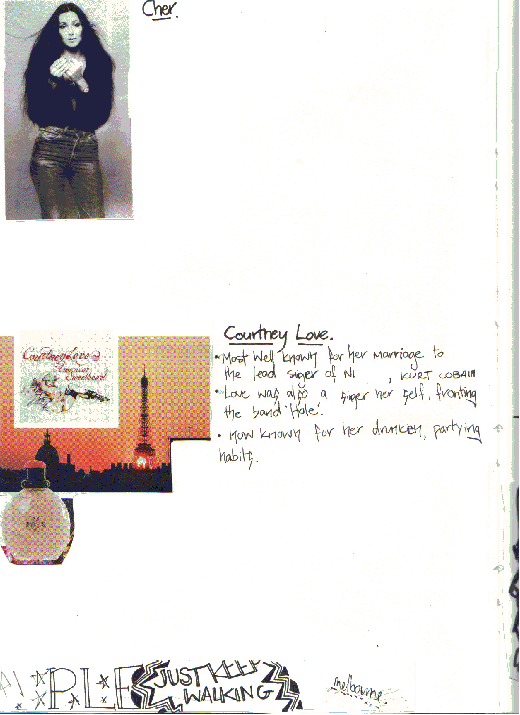 Cher.
Courtney Love.
• Most well known for her marriage to
the lead siger of Ni , KURT COBAIN
• Love was also a siger her self, fronting
the band 'Hole'.
• Now known for her drunken, partying
habits.
Courtney Love
JUST KEEP
WALKING
melbourne